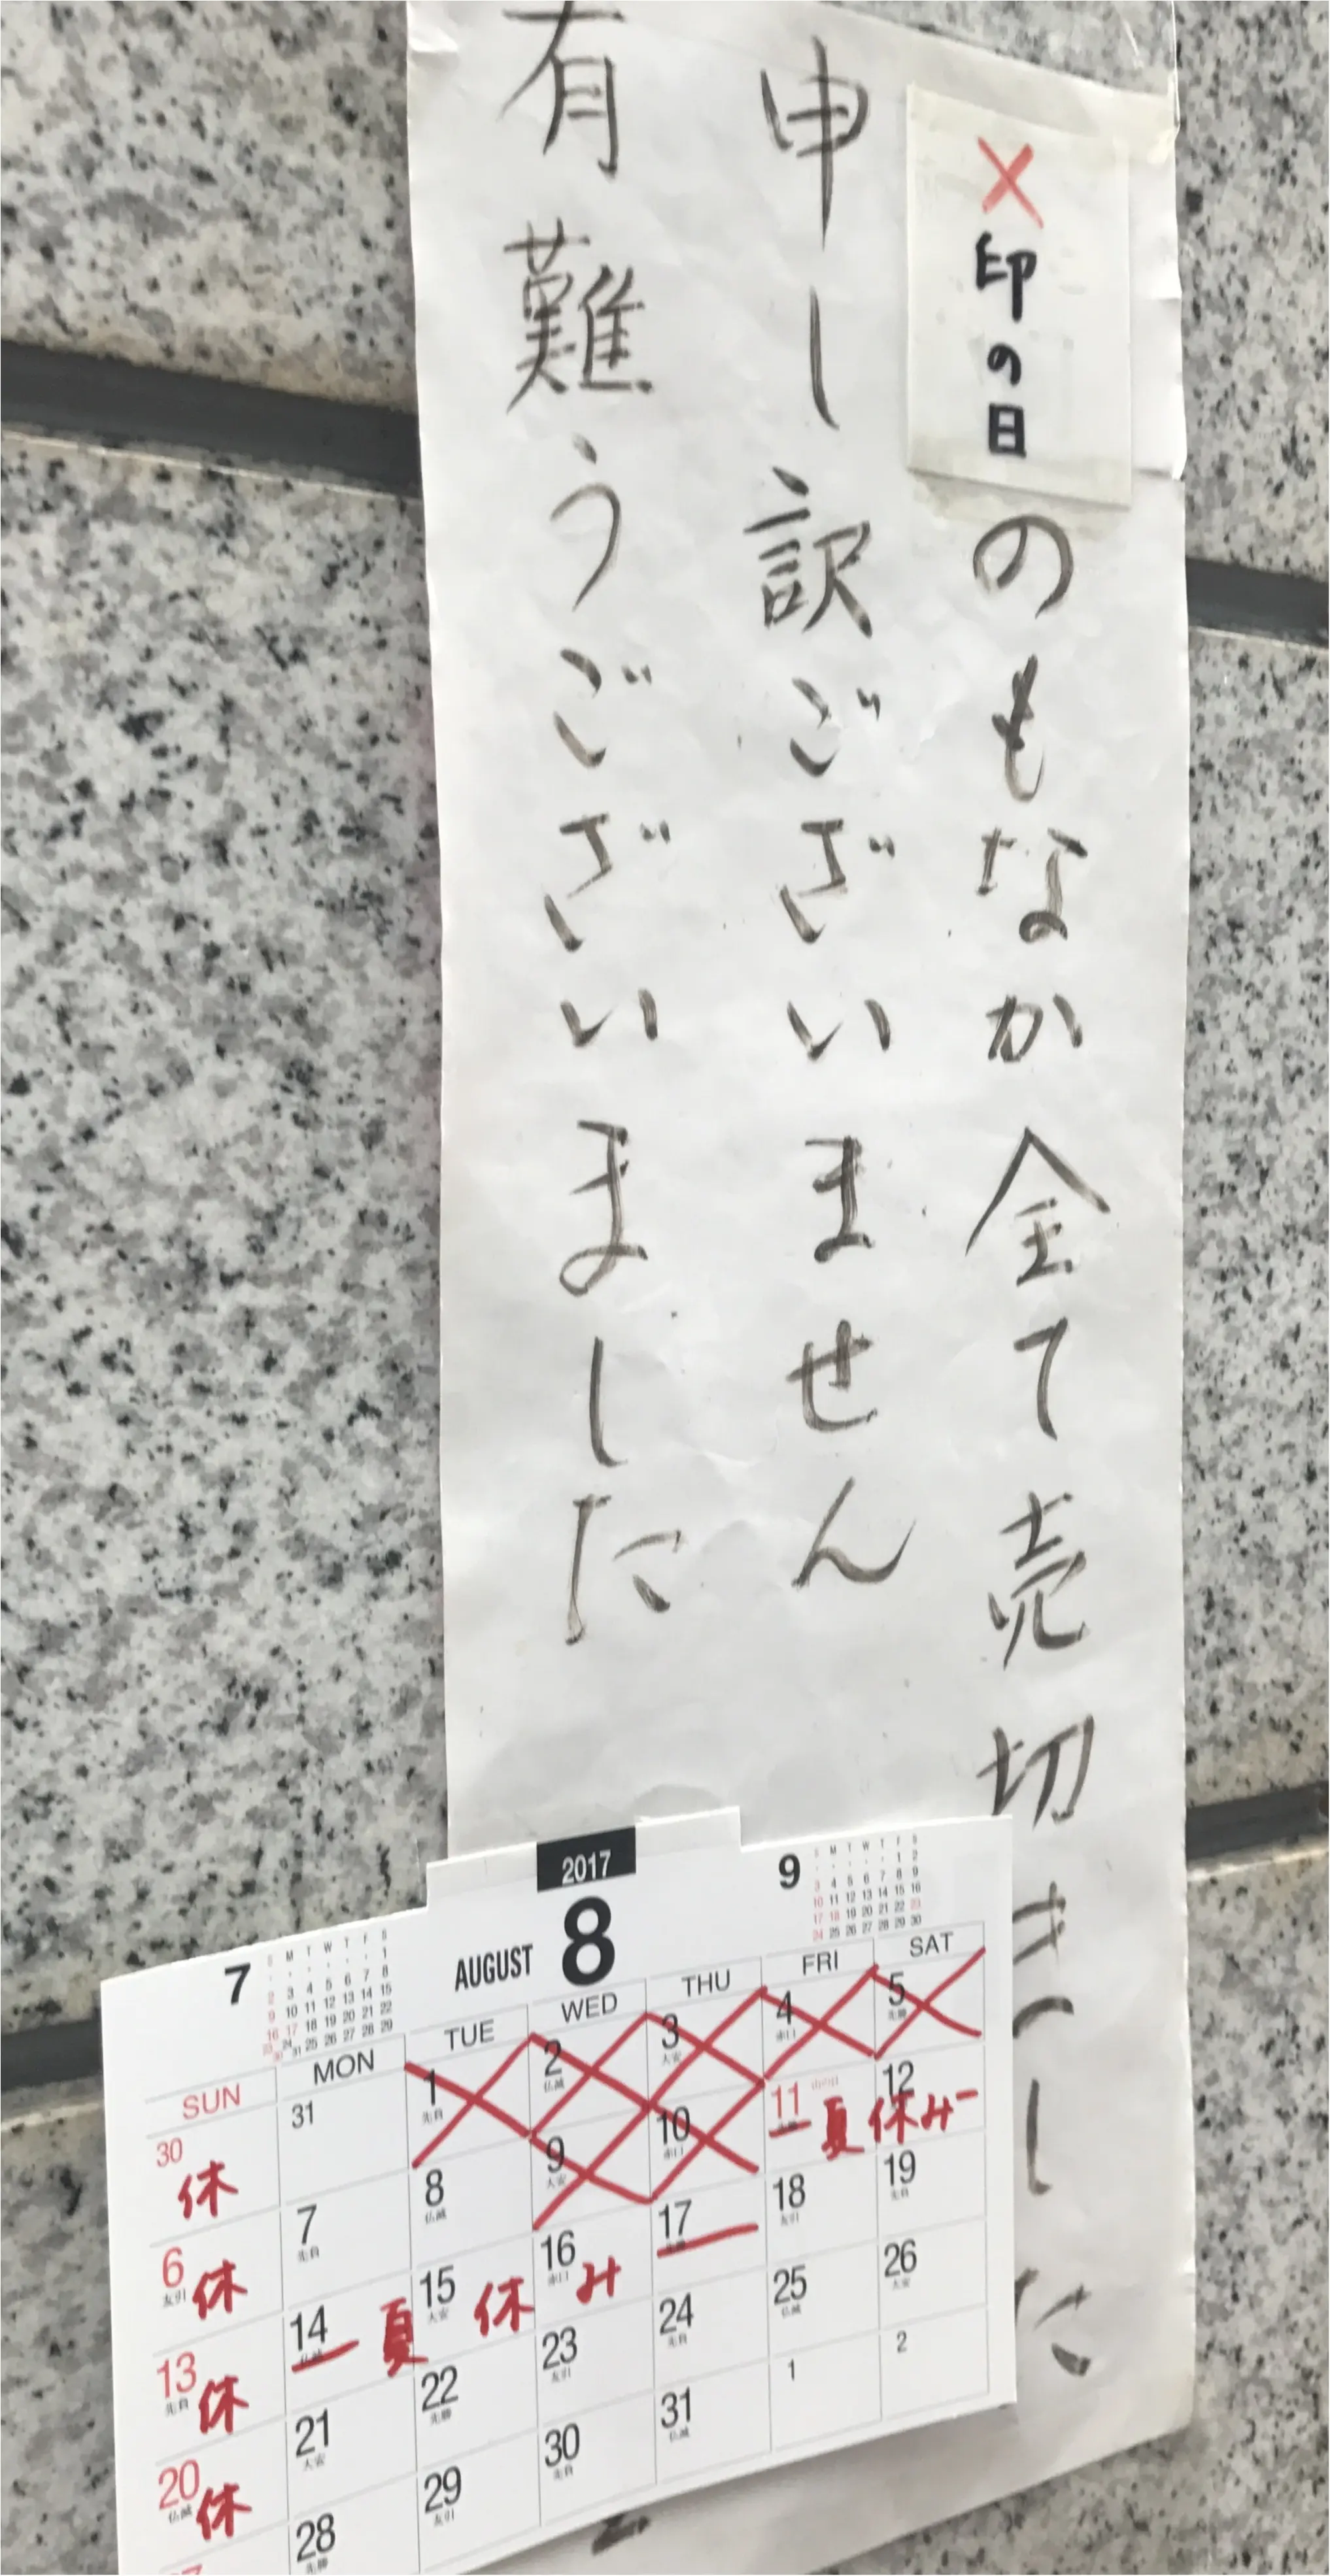 ×印の日のもなか全て売切ました
申し訳ございません
有難うございました
2017
AUGUST 8
7
S M T W T F S
1
2 3 4 5 6 7 8
9 10 11 12 13 14 15
16 17 18 19 20 21 22
23 24 25 26 27 28 29
30 31
9
S M T W T F S
1 2
3 4 5 6 7 8 9
10 11 12 13 14 15 16
17 18 19 20 21 22 23
24 25 26 27 28 29 30
SUN MON TUE WED THU FRI SAT
30 31 1 2 3 4 5
休 先負 仏滅 大安 赤口 先勝
6 7 8 9 10 11 12
友引 休 先負 仏滅 大安 赤口 山の日 夏休み
13 14 15 16 17 18 19
先負 休 仏滅 大安 赤口 友引 先負
夏休み
20 21 22 23 24 25 26
仏滅 休 大安 先勝 友引 先負 仏滅 大安
28 29 30 31 1 2
先勝 友引 先負 仏滅